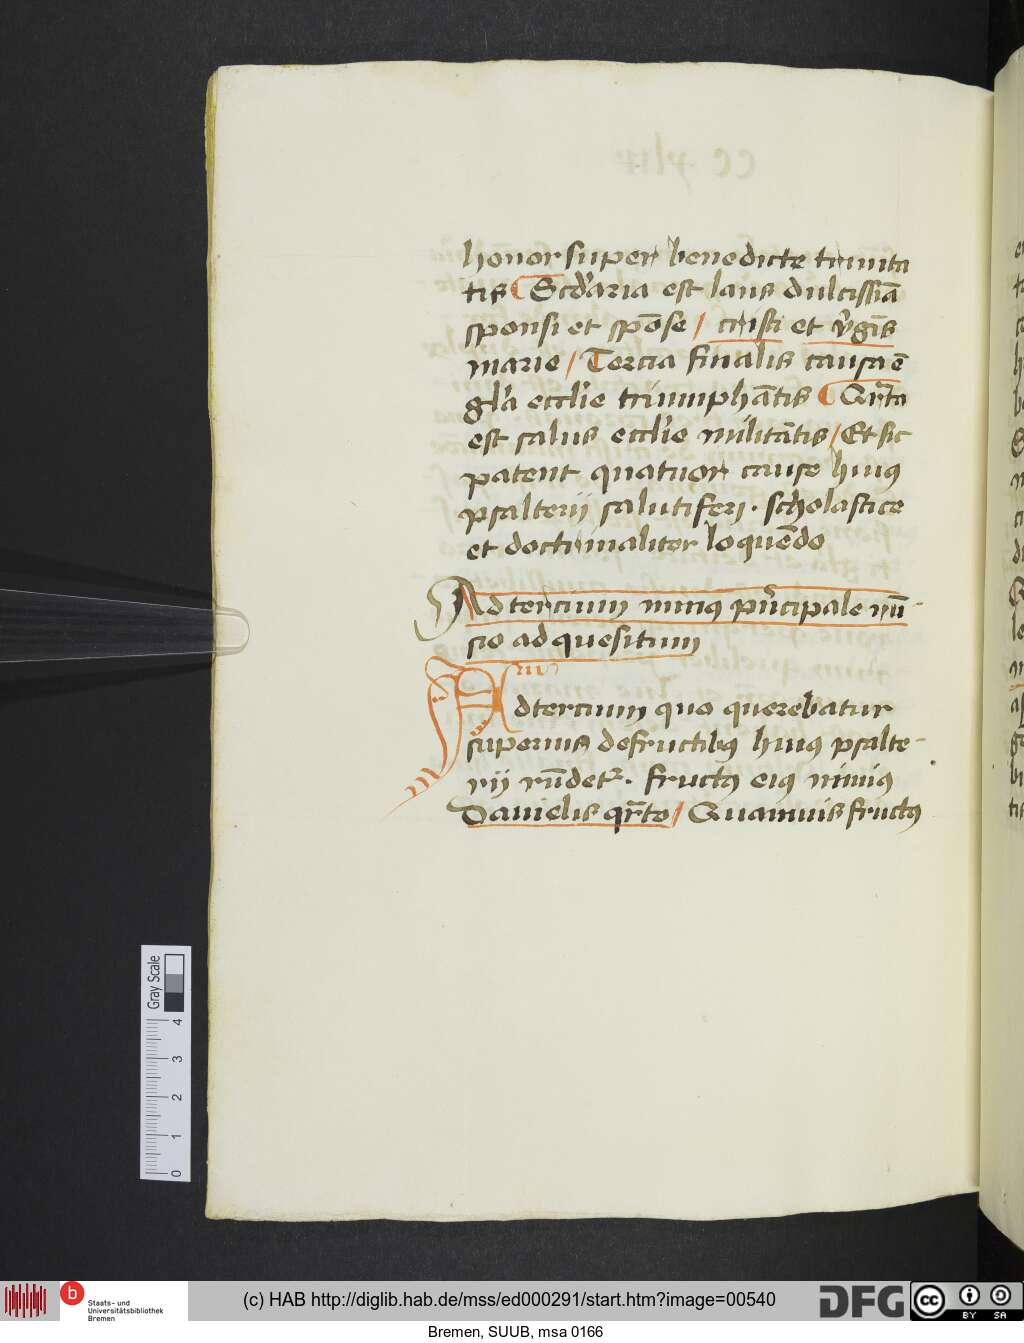 honor super benedicte trinita
tis Scd'aria est laus dulcissiā
sponsi et spōse / cristi et v̉gīs
marie / Tercia finalis causa ē
gl'a eccl'ie triumphātis Qr̄ta
est salus eccl'ie militātis / Et sic
patent quatuor cause huiꝰ
psalterij salutiferj . scholastice
et doctrinaliter loquēdo
Ad tercium minus pn̄cipale rn̄
sio ad quesitum
Ad tercium quo querebatur
superius de fructibꝰ huiꝰ psalte-
rij rn̄detꝛ . fructꝰ eiꝰ nimiꝰ
Danielis qr̄to / Quamuis fructꝰ
Gray Scale
0 1 2 3 4
b
Staats- und
Universitätsbibliothek
Bremen
(c) HAB http://diglib.hab.de/mss/ed000291/start.htm?image=00540
DFG
cc BY SA
Bremen, SUUB, msa 0166